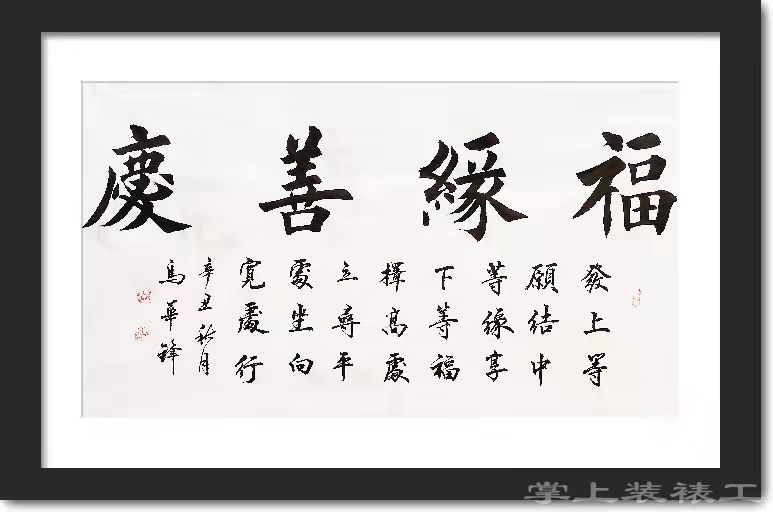 福緣善慶
發上等
願结中
等缘享
下等福
擇高處
立尋平
處坐向
寬處行
辛丑秋月
馬華鋒
掌上装裱工